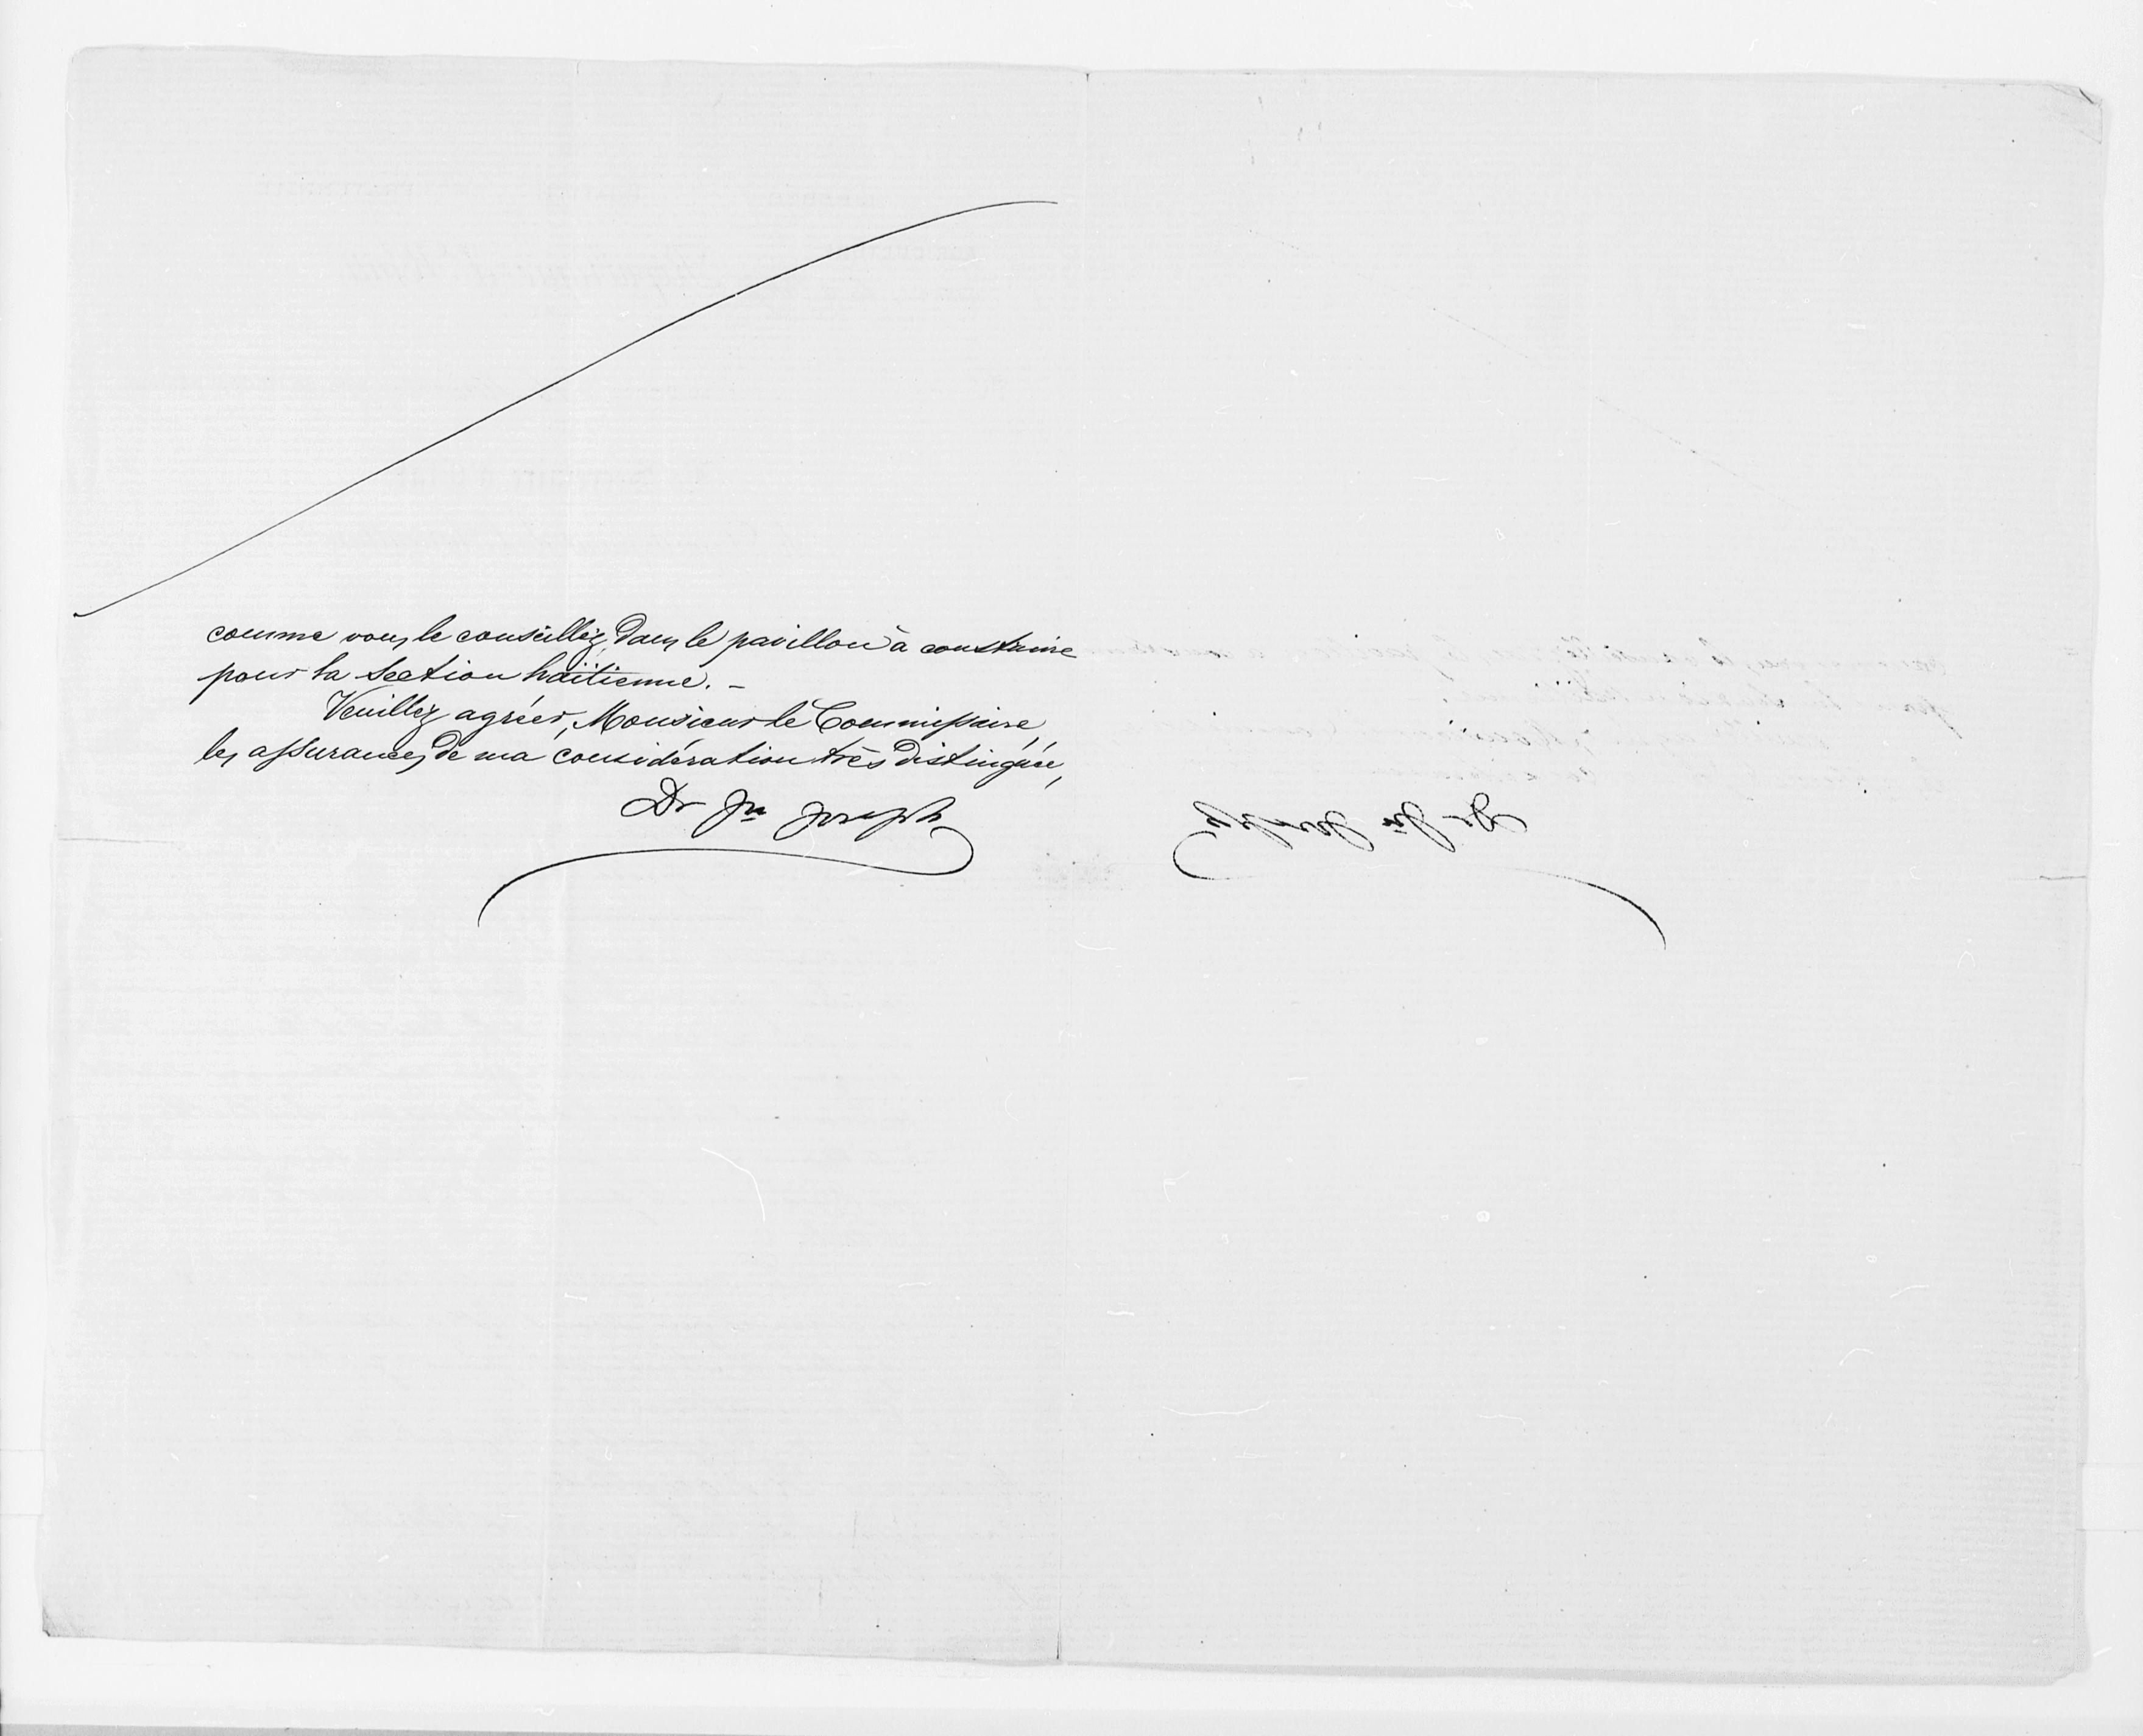 comme vous le conseillez, dans le pavillon à construire
pour la Section haïtienne. –
Veuillez agréer, Monsieur le Commissaire,
les assurances de ma considération très distinguée,
Dr Jn Joseph